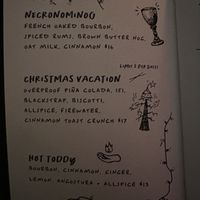 NECRONOMINOG
FRENCH OAKED BOURBON,
SPICED RUMS, BROWN BUTTER NOG,
OAT MILK, CINNAMON $16
CHRISTMAS VACATION
OVERPROOF PIÑA COLADA, 151,
BLACKSTRAP, BISCOTTI,
ALLSPICE, FIREWATER,
CINNAMON TOAST CRUNCH $17
HOT TODDY
BOURBON, CINNAMON, GINGER,
LEMON, ANGOSTURA + ALLSPICE $13